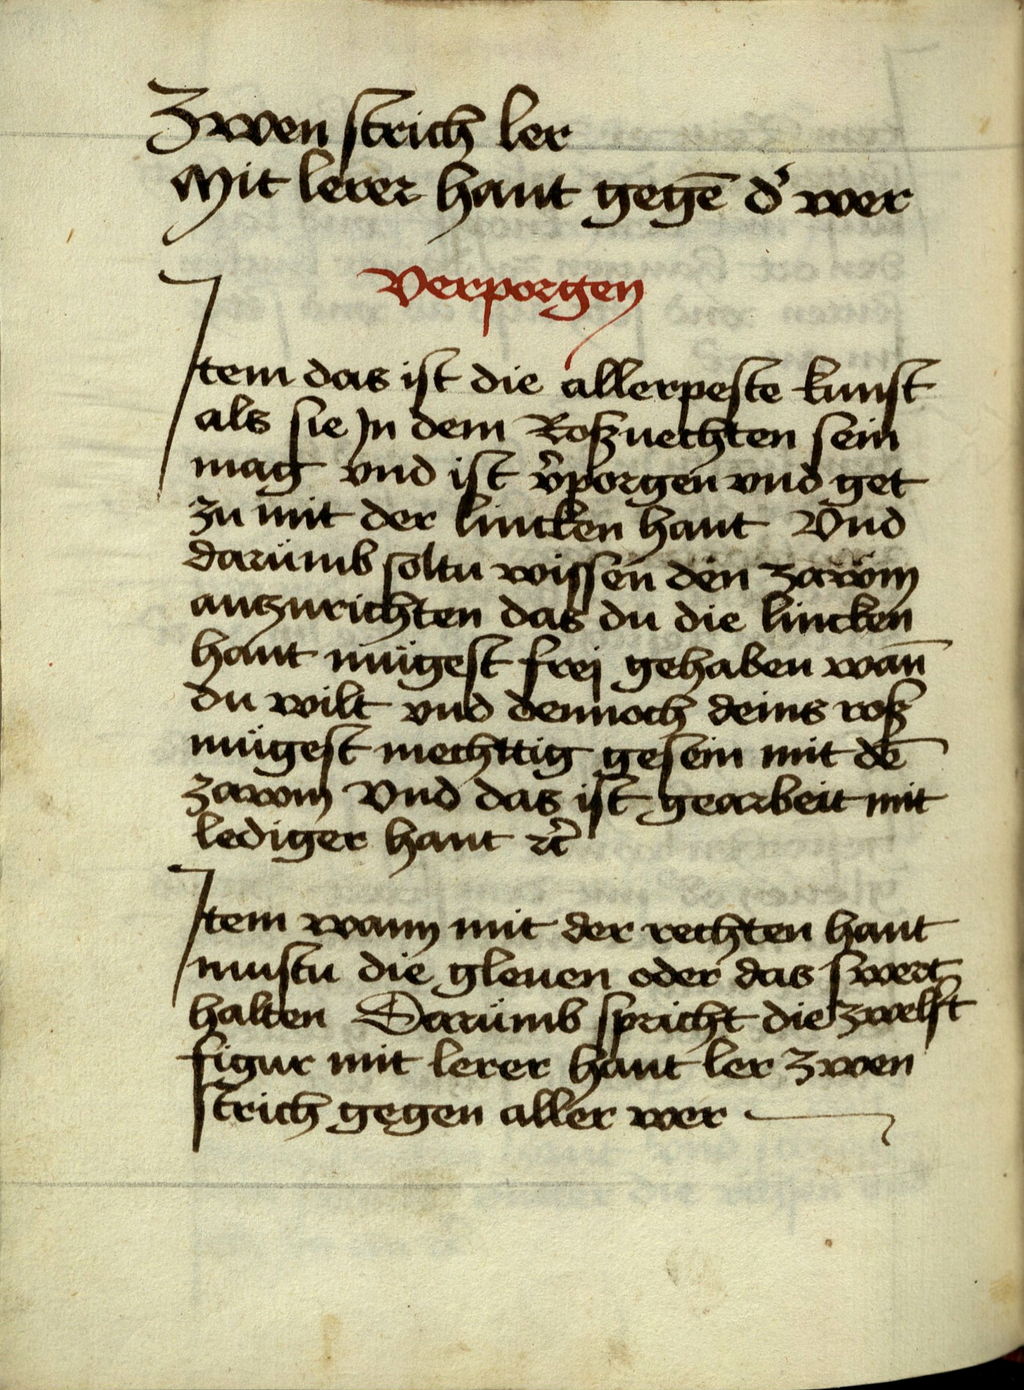 Zwen strich ler
Mit lerer hant gegē d' wer
Verporgen
Jtem das ist die allerpeste kunst
als sie Jn dem Roßuechten sein
mag vnd ist v̄porgen vnd get
zu mit der lincken hant Vnd
darümb soltu wissen den zawm
antzurichten das du die lincken
hant mügest frej gehaben wan̄
du wilt vnd dennoch deins roß
mügest mechttig gesein mit dē
zawm Vnd das ist gearbeit mit
lediger hant ꝛc̄
Jtem wann mit der rechten hant
mustu die gleuen oder das swert
halten Darümb spricht die zwelft
figur mit lerer hant ler zwen
strich gegen aller wer